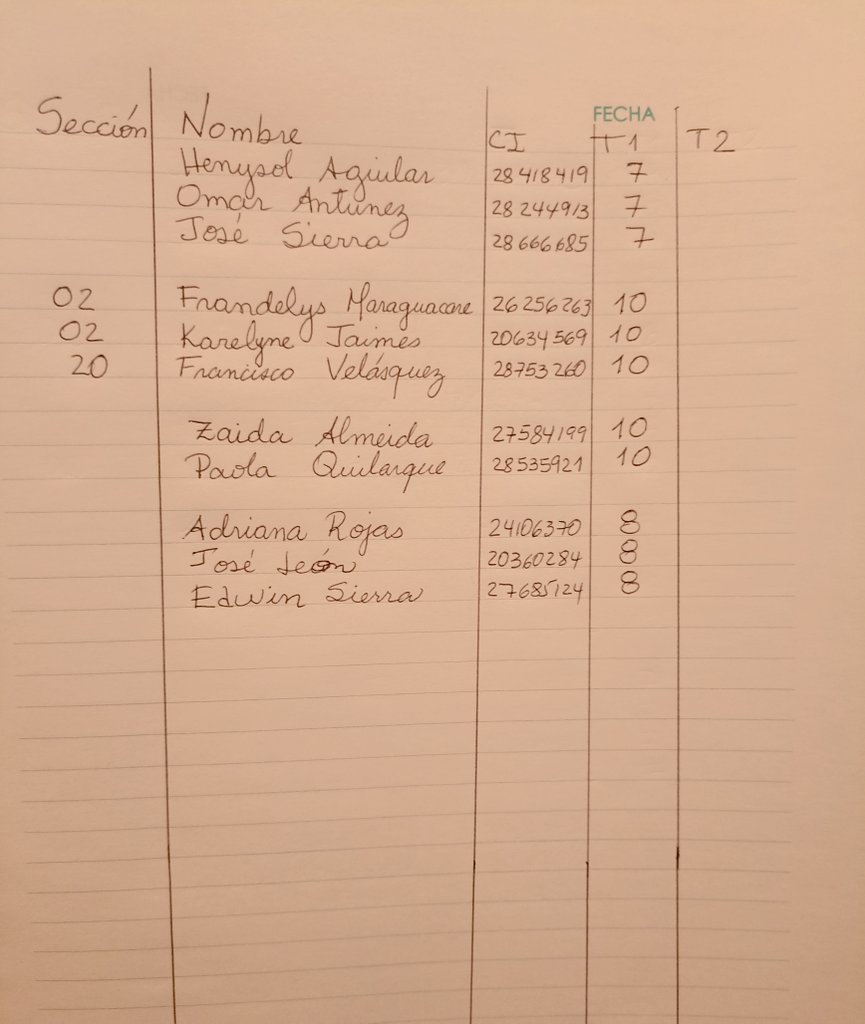 FECHA
Sección Nombre CI T1 T2
Henysol Aguilar 28418419 7
Omar Antunez 28244913 7
José Sierra 28666685 7
02 Frandelys Maraguacare 26256263 10
02 Karelyne Jaimes 20634569 10
20 Francisco Velásquez 28753260 10
Zaida Almeida 27584199 10
Paola Quilarque 28535921 10
Adriana Rojas 24106370 8
José León 20360284 8
Edwin Sierra 27685124 8